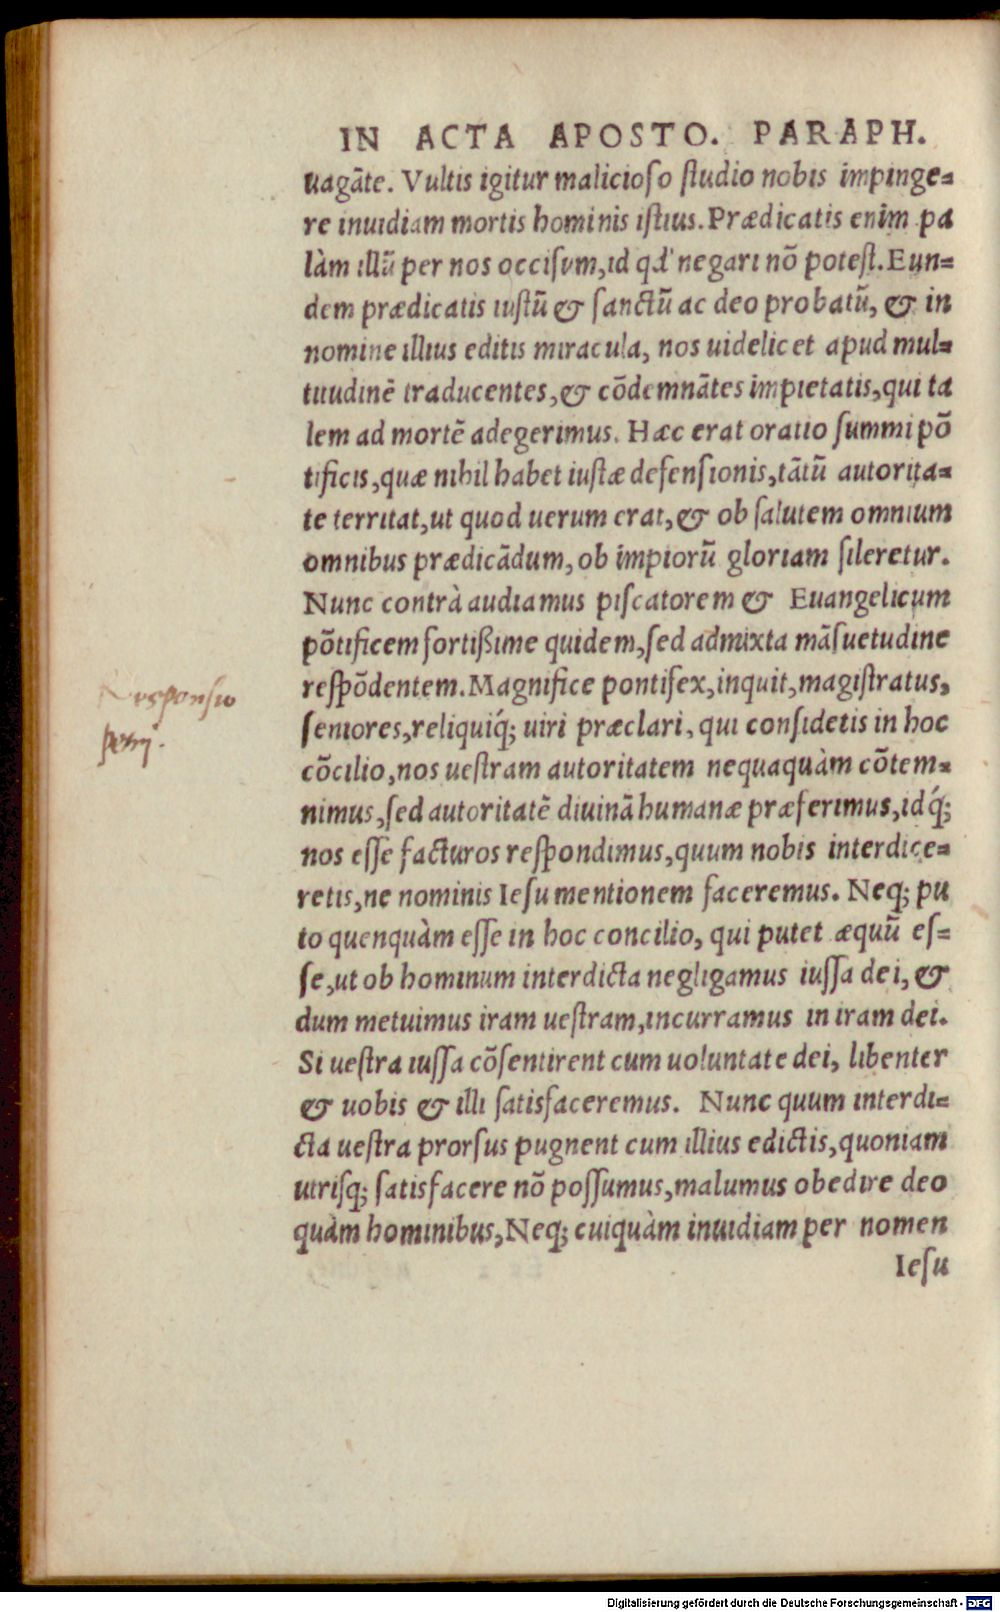 IN ACTA APOSTO. PARAPH.
uagãte. Vultis igitur malicioso studio nobis impinge=
re inuidiam mortis hominis istius. Prædicatis enim pa
làm illũ per nos occisum, id qd' negari nõ potest. Eun=
dem prædicatis iustũ & sanctũ ac deo probatũ, & in
nomine illius editis miracula, nos uidelicet apud mul=
titudinẽ traducentes, & cõdemnãtes impietatis, qui ta
lem ad mortẽ adegerimus. Hæc erat oratio summi põ
tificis, quæ nihil habet iustæ defensionis, tãtũ autorita=
te territat, ut quod uerum erat, & ob salutem omnium
omnibus prædicãdum, ob impiorũ gloriam sileretur.
Nunc contrà audiamus piscatorem & Euangelicum
põtificem fortißime quidem, sed admixta mãsuetudine
respõdentem. Magnifice pontifex, inquit, magistratus,
seniores, reliquiq́; uiri præclari, qui considetis in hoc
cõcilio, nos uestram autoritatem nequaquàm cõtem=
nimus, sed autoritatẽ diuinã humanæ præferimus, idq́;
nos esse facturos respondimus, quum nobis interdice=
retis, ne nominis Iesu mentionem faceremus. Neq; pu
to quenquàm esse in hoc concilio, qui putet æquũ es=
se, ut ob hominum interdicta negligamus iussa dei, &
dum metuimus iram uestram, incurramus in iram dei.
Si uestra iussa cõsentirent cum uoluntate dei, libenter
& uobis & illi satisfaceremus. Nunc quum interdi=
cta uestra prorsus pugnent cum illius edictis, quoniam
utrisq; satisfacere nõ possumus, malumus obedire deo
quàm hominibus, Neq; cuiquàm inuidiam per nomen
Iesu
Responsio
petrj.
Digitalisierung gefördert durch die Deutsche Forschungsgemeinschaft - DFG